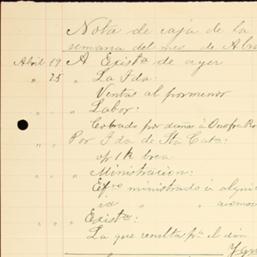 Nota de caja de la
semana del mes de Abr
Abril 19 A Exist.ª de ayer
" 25 " La Fda:
Ventas al pormenor
" " " Labor:
Cobrado por diños á Onofre Ro
" " Por Fda de Sta Cata:
op 1 k brea
" " " Ministracion:
Ef.vo ministrado á
" " " Exist.ª:
La que resulta pª el dia